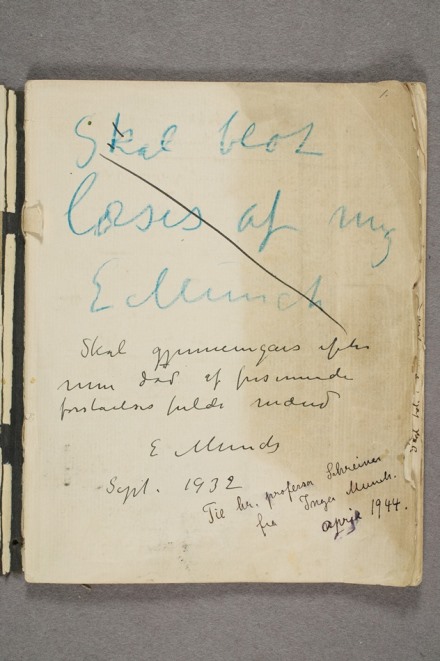 Skal blot
læses af mig
E Munch
Skal gjennemgaaes efter
min død af frisinnede
forstaaelsesfulde mænd
E Munch
Sept. 1932
Til hr. professor Schreiner
fra Inger Munch.
april 1944.